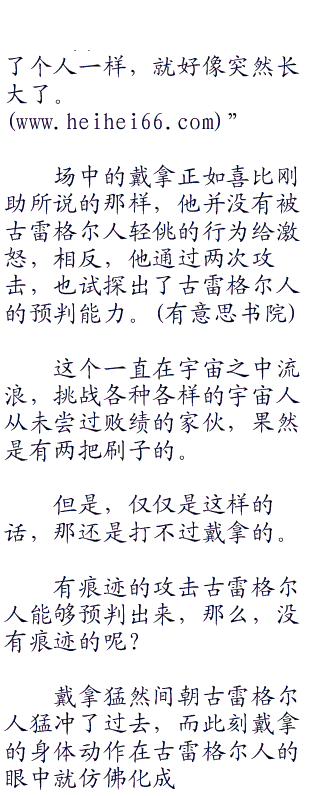 了个人一样，就好像突然长
大了。
(www.heihei66.com)”
场中的戴拿正如喜比刚
助所说的那样，他并没有被
古雷格尔人轻佻的行为给激
怒，相反，他通过两次攻
击，也试探出了古雷格尔人
的预判能力。(有意思书院)
这个一直在宇宙之中流
浪，挑战各种各样的宇宙人
从未尝过败绩的家伙，果然
是有两把刷子的。
但是，仅仅是这样的
话，那还是打不过戴拿的。
有痕迹的攻击古雷格尔
人能够预判出来，那么，没
有痕迹的呢？
戴拿猛然间朝古雷格尔
人猛冲了过去，而此刻戴拿
的身体动作在古雷格尔人的
眼中就仿佛化成